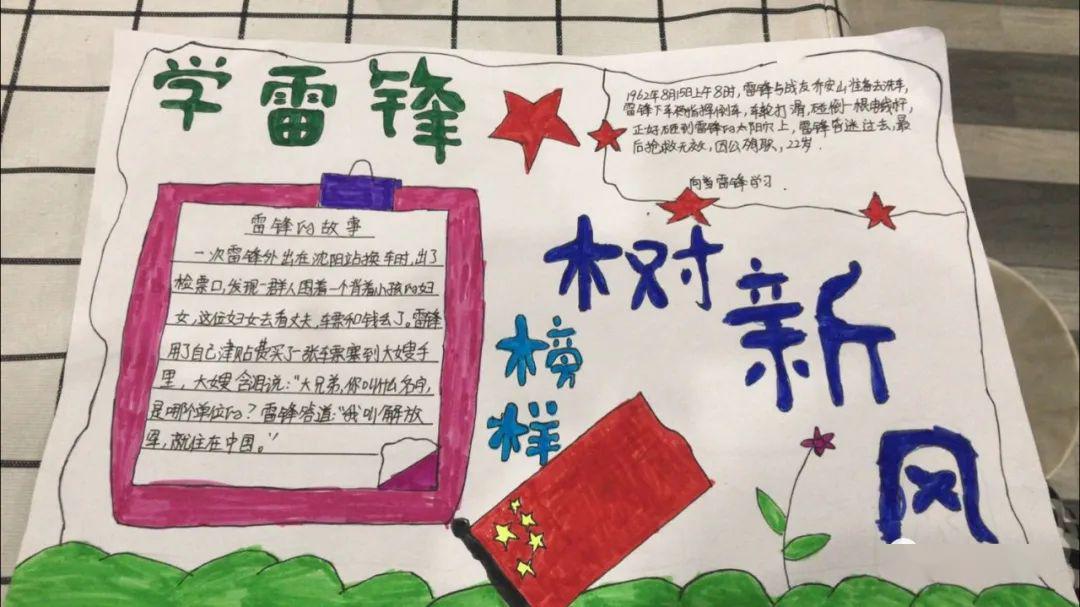 学雷锋
1962年8月15日上午8时,雷锋与战友乔安山准备去洗车,
雷锋下车指挥倒车,车轮打滑,碰倒一根电线杆,
正好砸到雷锋的太阳穴上,雷锋昏迷过去,最
后抢救无效,因公殉职,22岁.
向雷锋学习.
雷锋的故事
一次雷锋外出在沈阳站换车时,出了
检票口,发现一群人围着一个背着小孩的妇
女,这位妇女去看丈夫,车票和钱丢了。雷锋
用了自己津贴费买了一张车票塞到大嫂手
里,大嫂含泪说:"大兄弟,你叫什么名字,
是哪个单位的?雷锋答道:"我叫解放
军,就住在中国。"
树新风
榜样